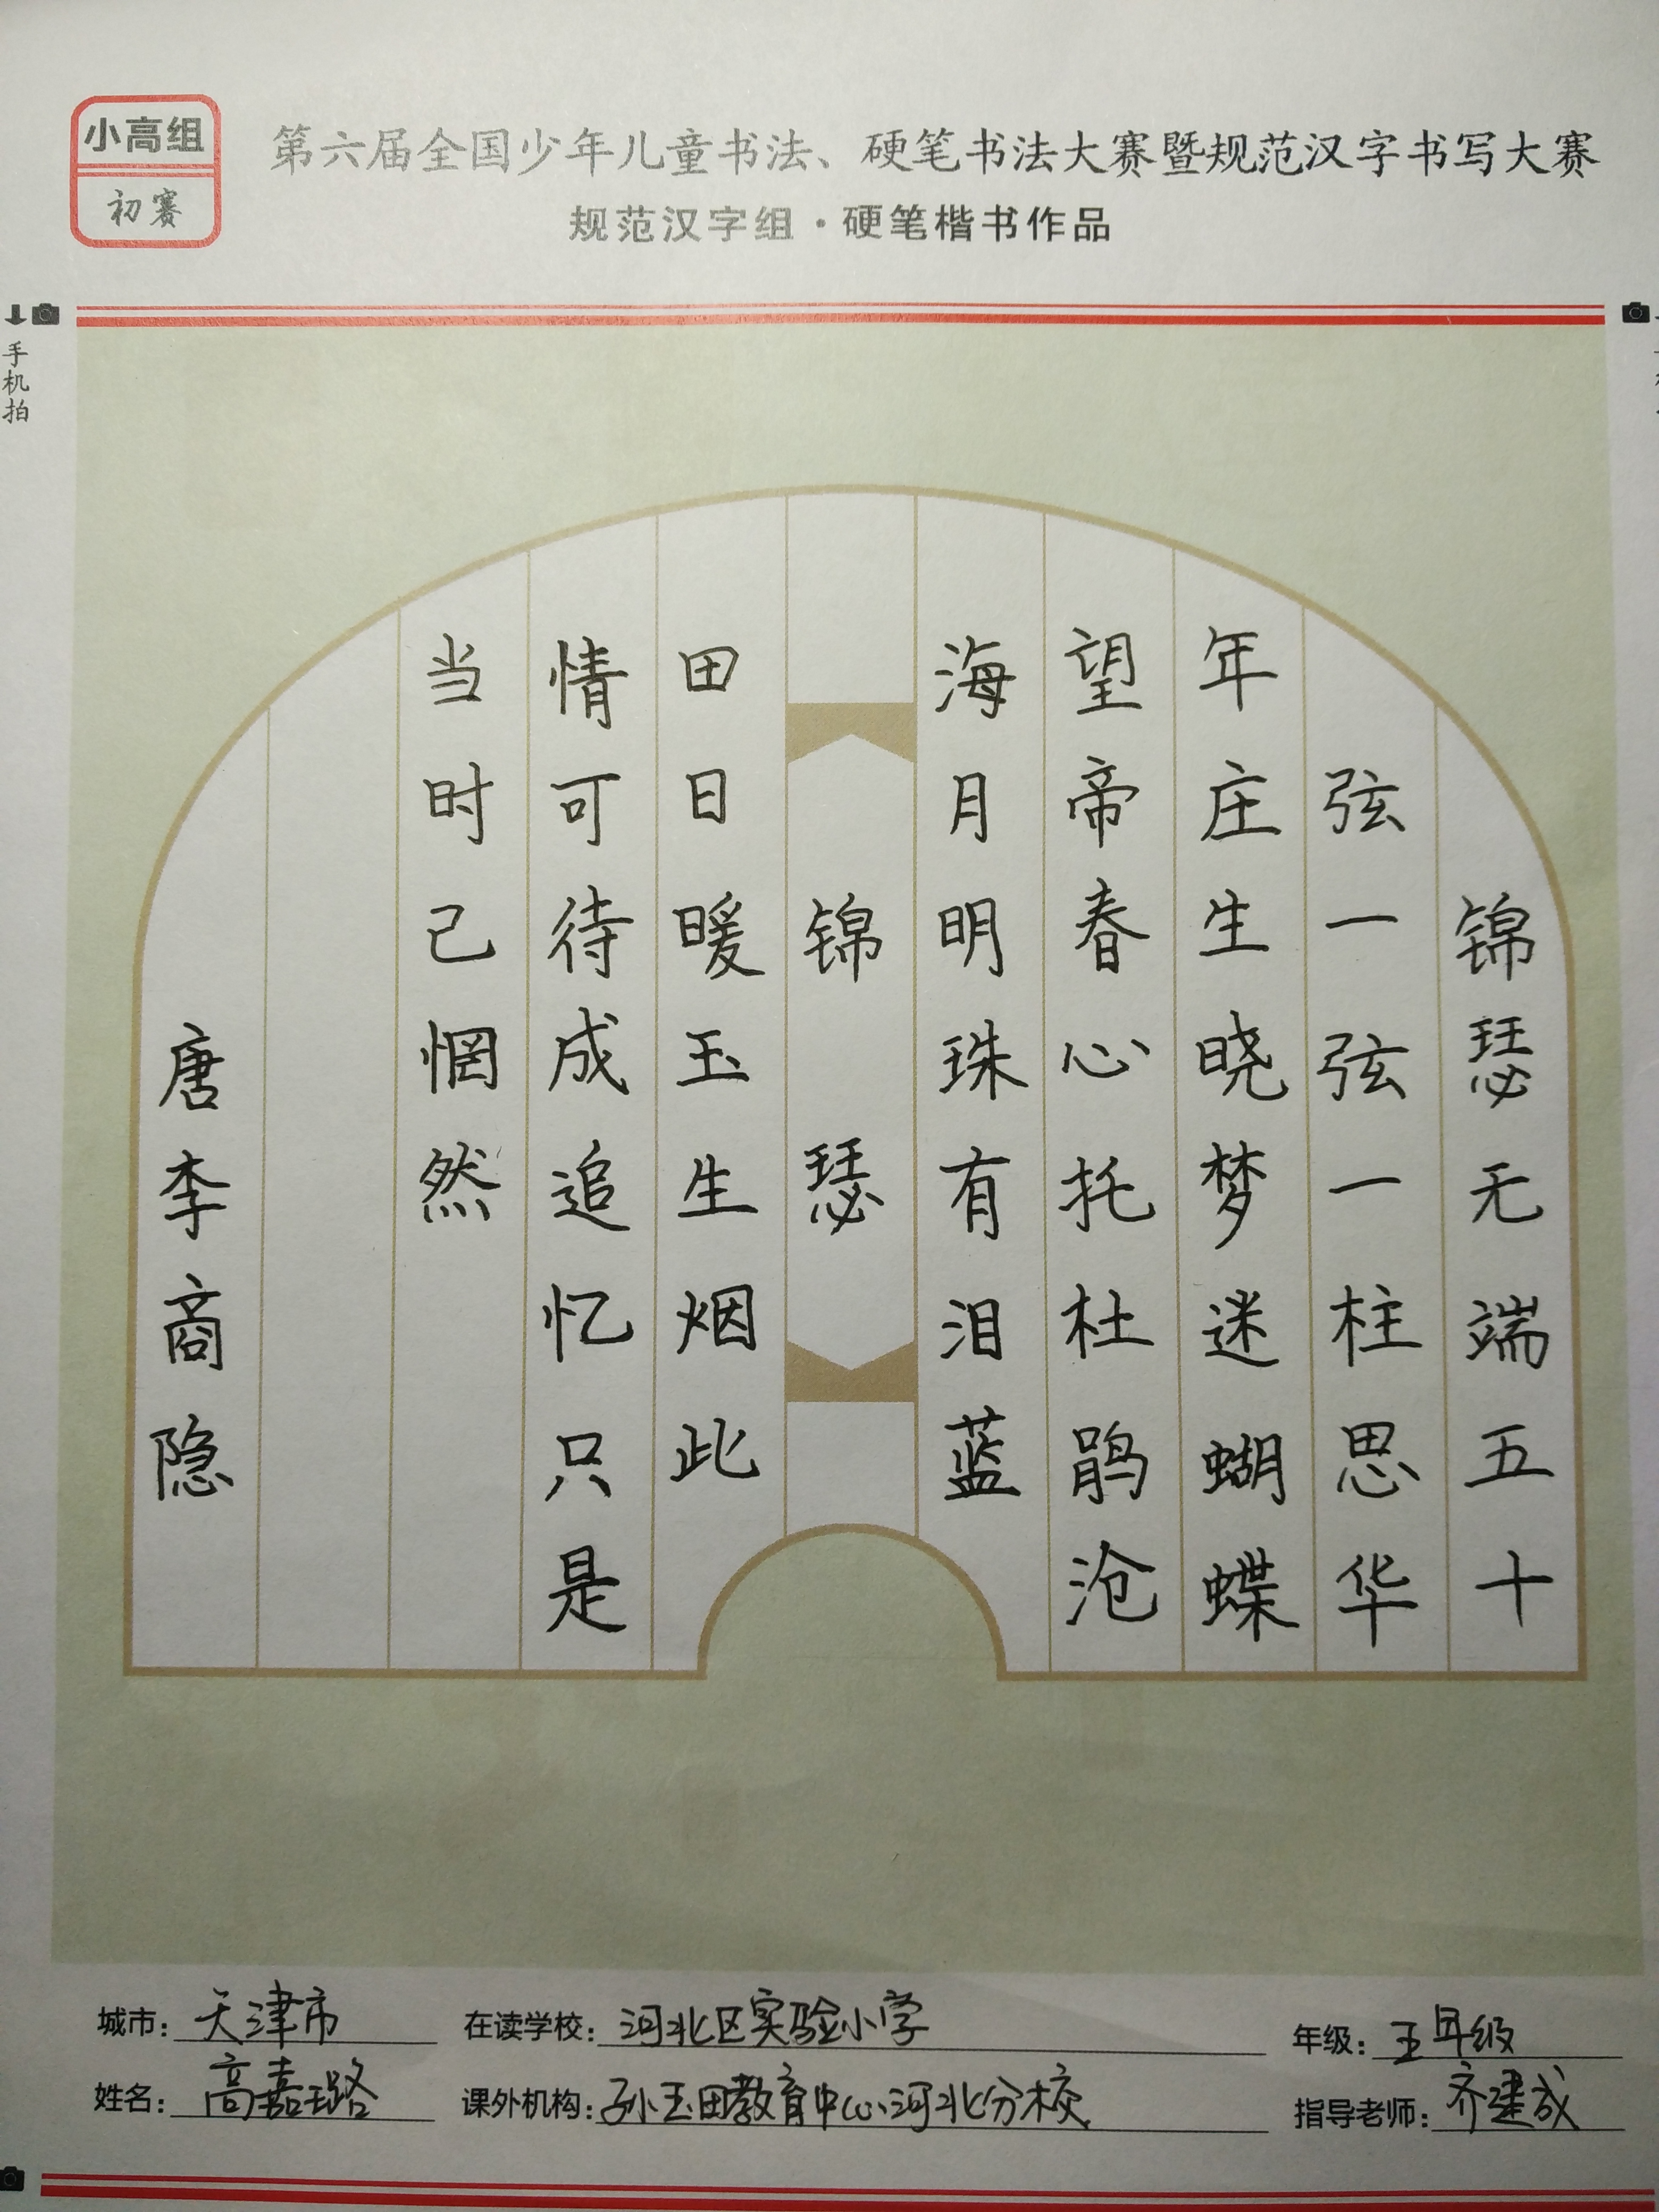 小高组
初赛
第六届全国少年儿童书法、硬笔书法大赛暨规范汉字书写大赛
规范汉字组·硬笔楷书作品
手机拍
锦瑟无端五十
弦一弦一柱思华
年庄生晓梦迷蝴蝶
望帝春心托杜鹃沧
海月明珠有泪蓝
锦瑟
田日暖玉生烟此
情可待成追忆只是
当时己惘然
唐李商隐
城市：天津市
在读学校：河北区实验小学
年级：五年级
姓名：高嘉璐
课外机构：孙玉田教育中心河北分校
指导老师：齐建成